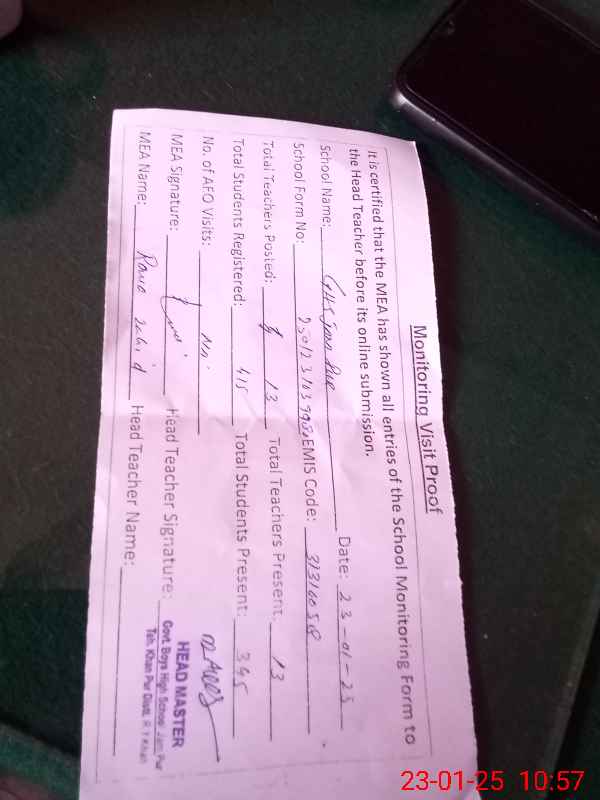 Monitoring Visit Proof
It is certified that the MEA has shown all entries of the School Monitoring Form to
the Head Teacher before its online submission.
Date: 23-01-25
School Name: GHS Jan Pur
School Form No: EMIS Code: 31310058
Total Teachers Posted: 13 Total Teachers Present: 13
Total Students Registered: 415 Total Students Present: 345
No. of AFO Visits:
MEA Signature: Head Teacher Signature:
MEA Name: Head Teacher Name:
HEAD MASTER
Govt. Boys High School Jan Pur
Teh. Khan Pur Distt. R.Y.Khan
23-01-25 10:57